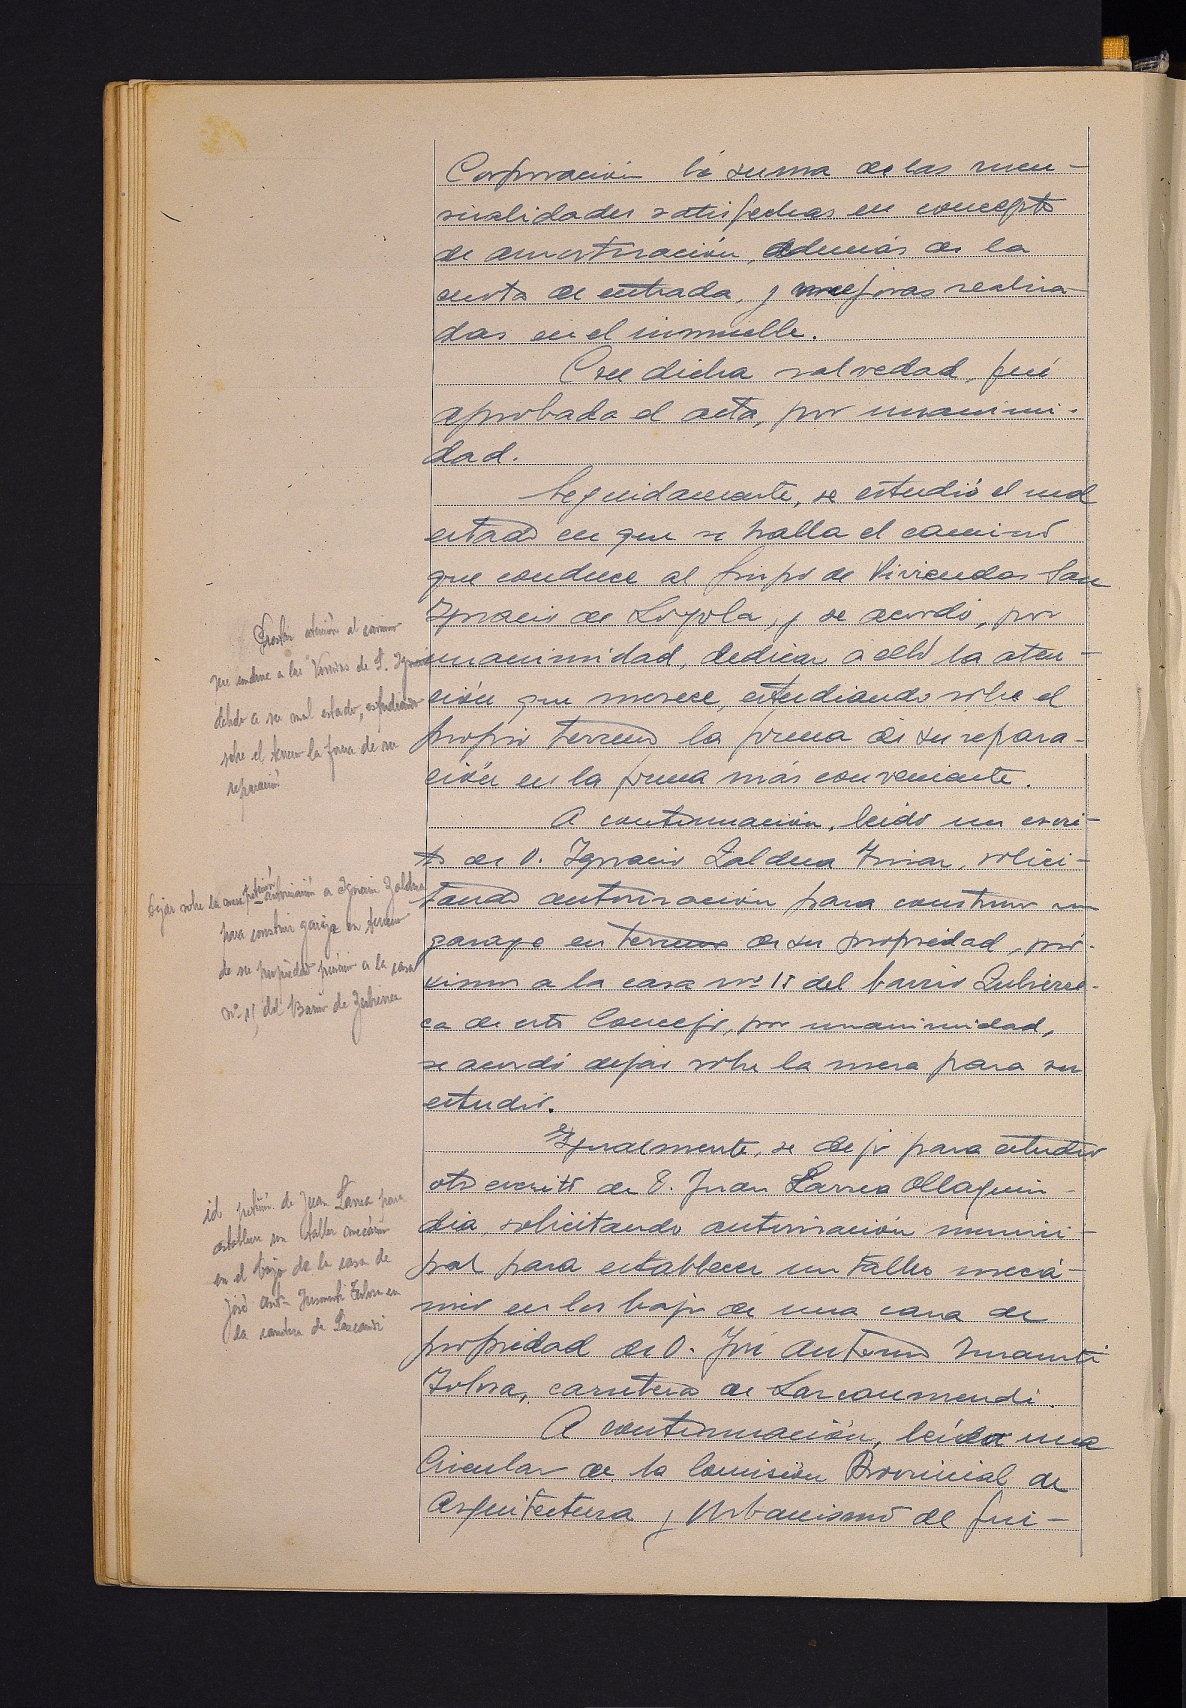 Corporación la suma de las men-
sualidades satisfechas en concepto
de amortización, además de la
cuota de entrada, y mejoras realiza-
das en el inmueble.
Con dicha salvedad, fué
aprobada el acta, por unanimi-
dad.
Seguidamente, se estudió el mal
estado en que se halla el camino
que conduce al Grupo de Viviendas San
Ignacio de Loyola, y se acordó, por
unanimidad, dedicar a ello la aten-
ción que merece, estudiando sobre el
propio terreno la forma de su repara-
ción en la forma más conveniente.
A continuación, leído un escri-
to de D. Ignacio Zaldua Iriar, solici-
tando autorización para construir un
garage en terreno de su propiedad, pró-
ximo a la casa nº 15 del barrio Zubierre-
ca de este Concejo, por unanimidad,
se acordó dejar sobre la mesa para su
estudio.
Igualmente, se dejó para estudio
otro escrito de D. Juan Larrea Ollaquin-
dia, solicitando autorización munici-
pal para establecer un taller mecá-
nico en los bajos de una casa de
propiedad de D. José Antonio
Tolosa, carretera de Lazcaomendi.
A continuación, leída una
Circular de la Comisión Provincial de
Arquitectura y Urbanismo de Gui-
Prestar atención al camino
que conduce a las Viviendas de S. Ignacio
debido a su mal estado, estudiando
sobre el terreno la forma de su
reparación
Dejar sobre la mesa petición autorización a Ignacio Zaldua
para construir garaje en terreno
de su propiedad próximo a la casa
nº 15 del Barrio de Zubierreca
id. petición de Juan Larrea para
establecer un taller mecánico
en el bajo de la casa de
José Antº Tolosa en
la carretera de